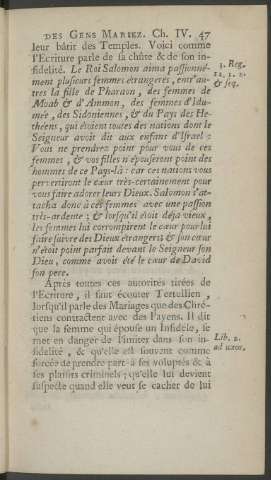 DES GENS MARIEZ. Ch. IV. 47
leur bâtir des Temples. Voici comme
l'Ecriture parle de sa chûte & de son in-
fidelité. Le Roi Salomon aima passionné-
ment plusieurs femmes étrangeres, entr'au-
tres la fille de Pharaon, des femmes de
Moab & d'Ammon, des femmes d'Idu-
mée, des Sidoniennes, & du Pays des He-
théens, qui étoient toutes des nations dont le
Seigneur avoit dit aux enfans d'Israel :
Vous ne prendrez point pour vous de ces
femmes, & vos filles n'épouseront point des
hommes de ce Pays-là : car ces nations vous
pervertiront le cœur très-certainement pour
vous faire adorer leurs Dieux. Salomon s'at-
tacha donc à ces femmes avec une passion
très-ardente ; & lorsqu'il étoit déja vieux,
les femmes lui corrompirent le cœur pour lui
faire suivre des Dieux étrangers : & son cœur
n'étoit point parfait devant le Seigneur son
Dieu, comme avoit été le cœur de David
son pere.
Après toutes ces autorités tirées de
l'Ecriture, il faut écouter Tertullien,
lorsqu'il parle des Mariages que des Chré-
tiens contractent avec des Payens. Il dit
que la femme qui épouse un Infidele, se
met en danger de l'imiter dans son in-
fidelité, & qu'elle est souvent comme
forcée de prendre part à ses voluptés & à
ses plaisirs criminels ; qu'elle lui devient
suspecte quand elle veut se cacher de lui
3. Reg.
11. 1. 2.
& seq.
Lib. 2.
ad uxor.